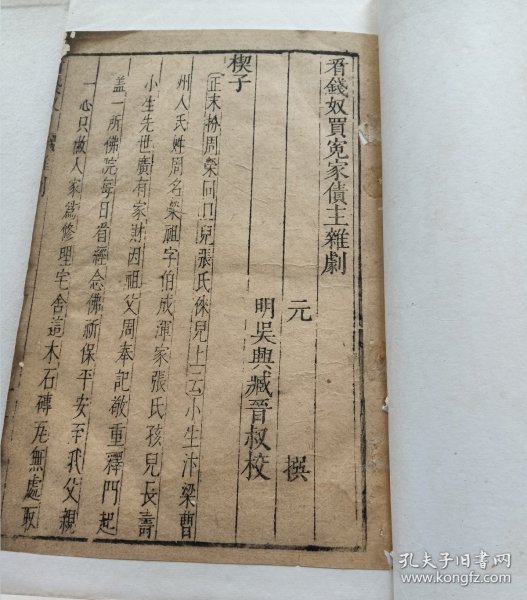 看錢奴買冤家債主雜劇
元 撰
明吳興臧晉叔校
楔子
正末扮周榮祖同旦兒張氏俫兒上云小生汴梁曹
州人氏姓周名榮祖字伯成渾家張氏孩兒長壽
小生先世廣有家財因祖父周奉記敬重釋門起
盖一所佛院每日看經念佛祈保平安至我父親
一心只做人家爲修理宅舍這木石磚瓦無處取
孔夫子旧书网
www.kongfz.com